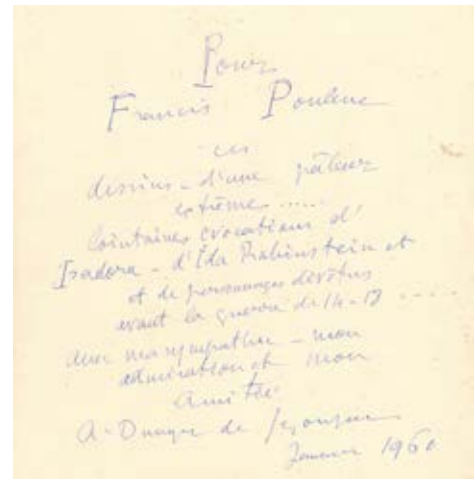 Pour
Francis Poulenc
ces
dessins - d'une pâleur
extrême .....
lointaines évocations d'
Isadora - d'Ida Rubinstein et
et de personnages dévêtus
avant la guerre de 14-18 ....
avec ma sympathie - mon
admiration et mon
amitié
A. Dunoyer de Segonzac
Janvier 1960